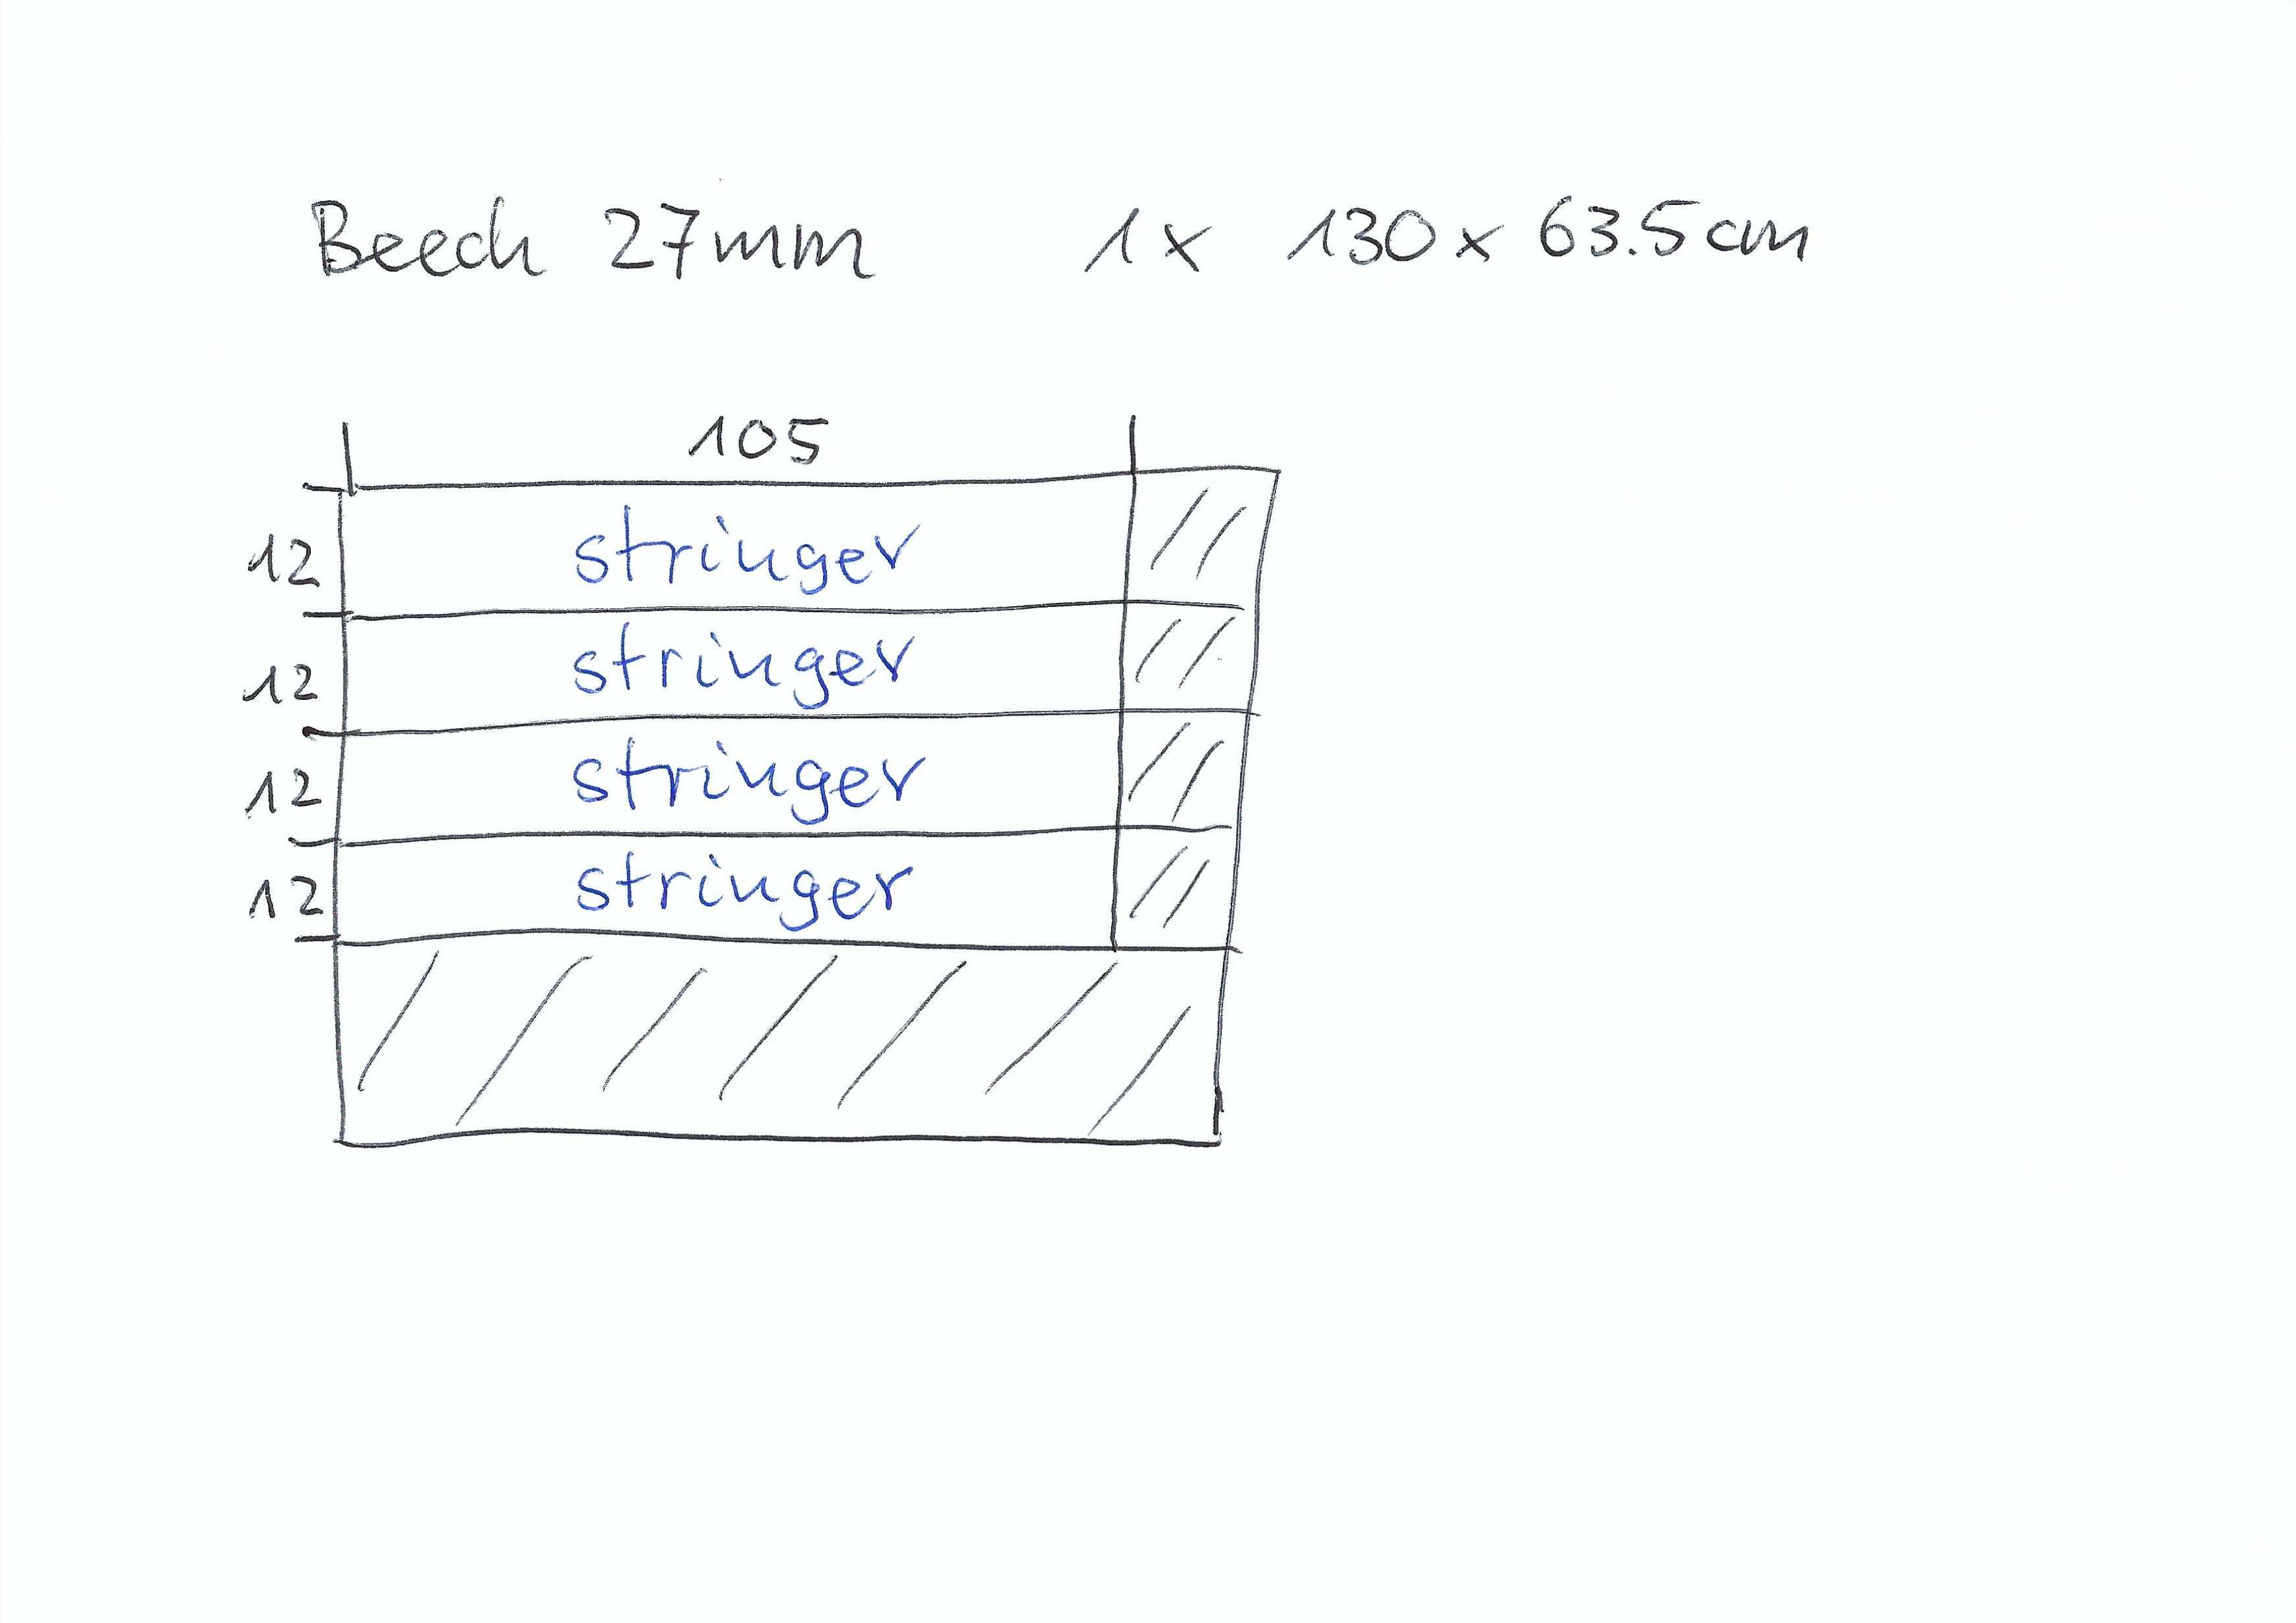 Beech 27mm 1x 130x63.5cm
105
12 stringer
12 stringer
12 stringer
12 stringer